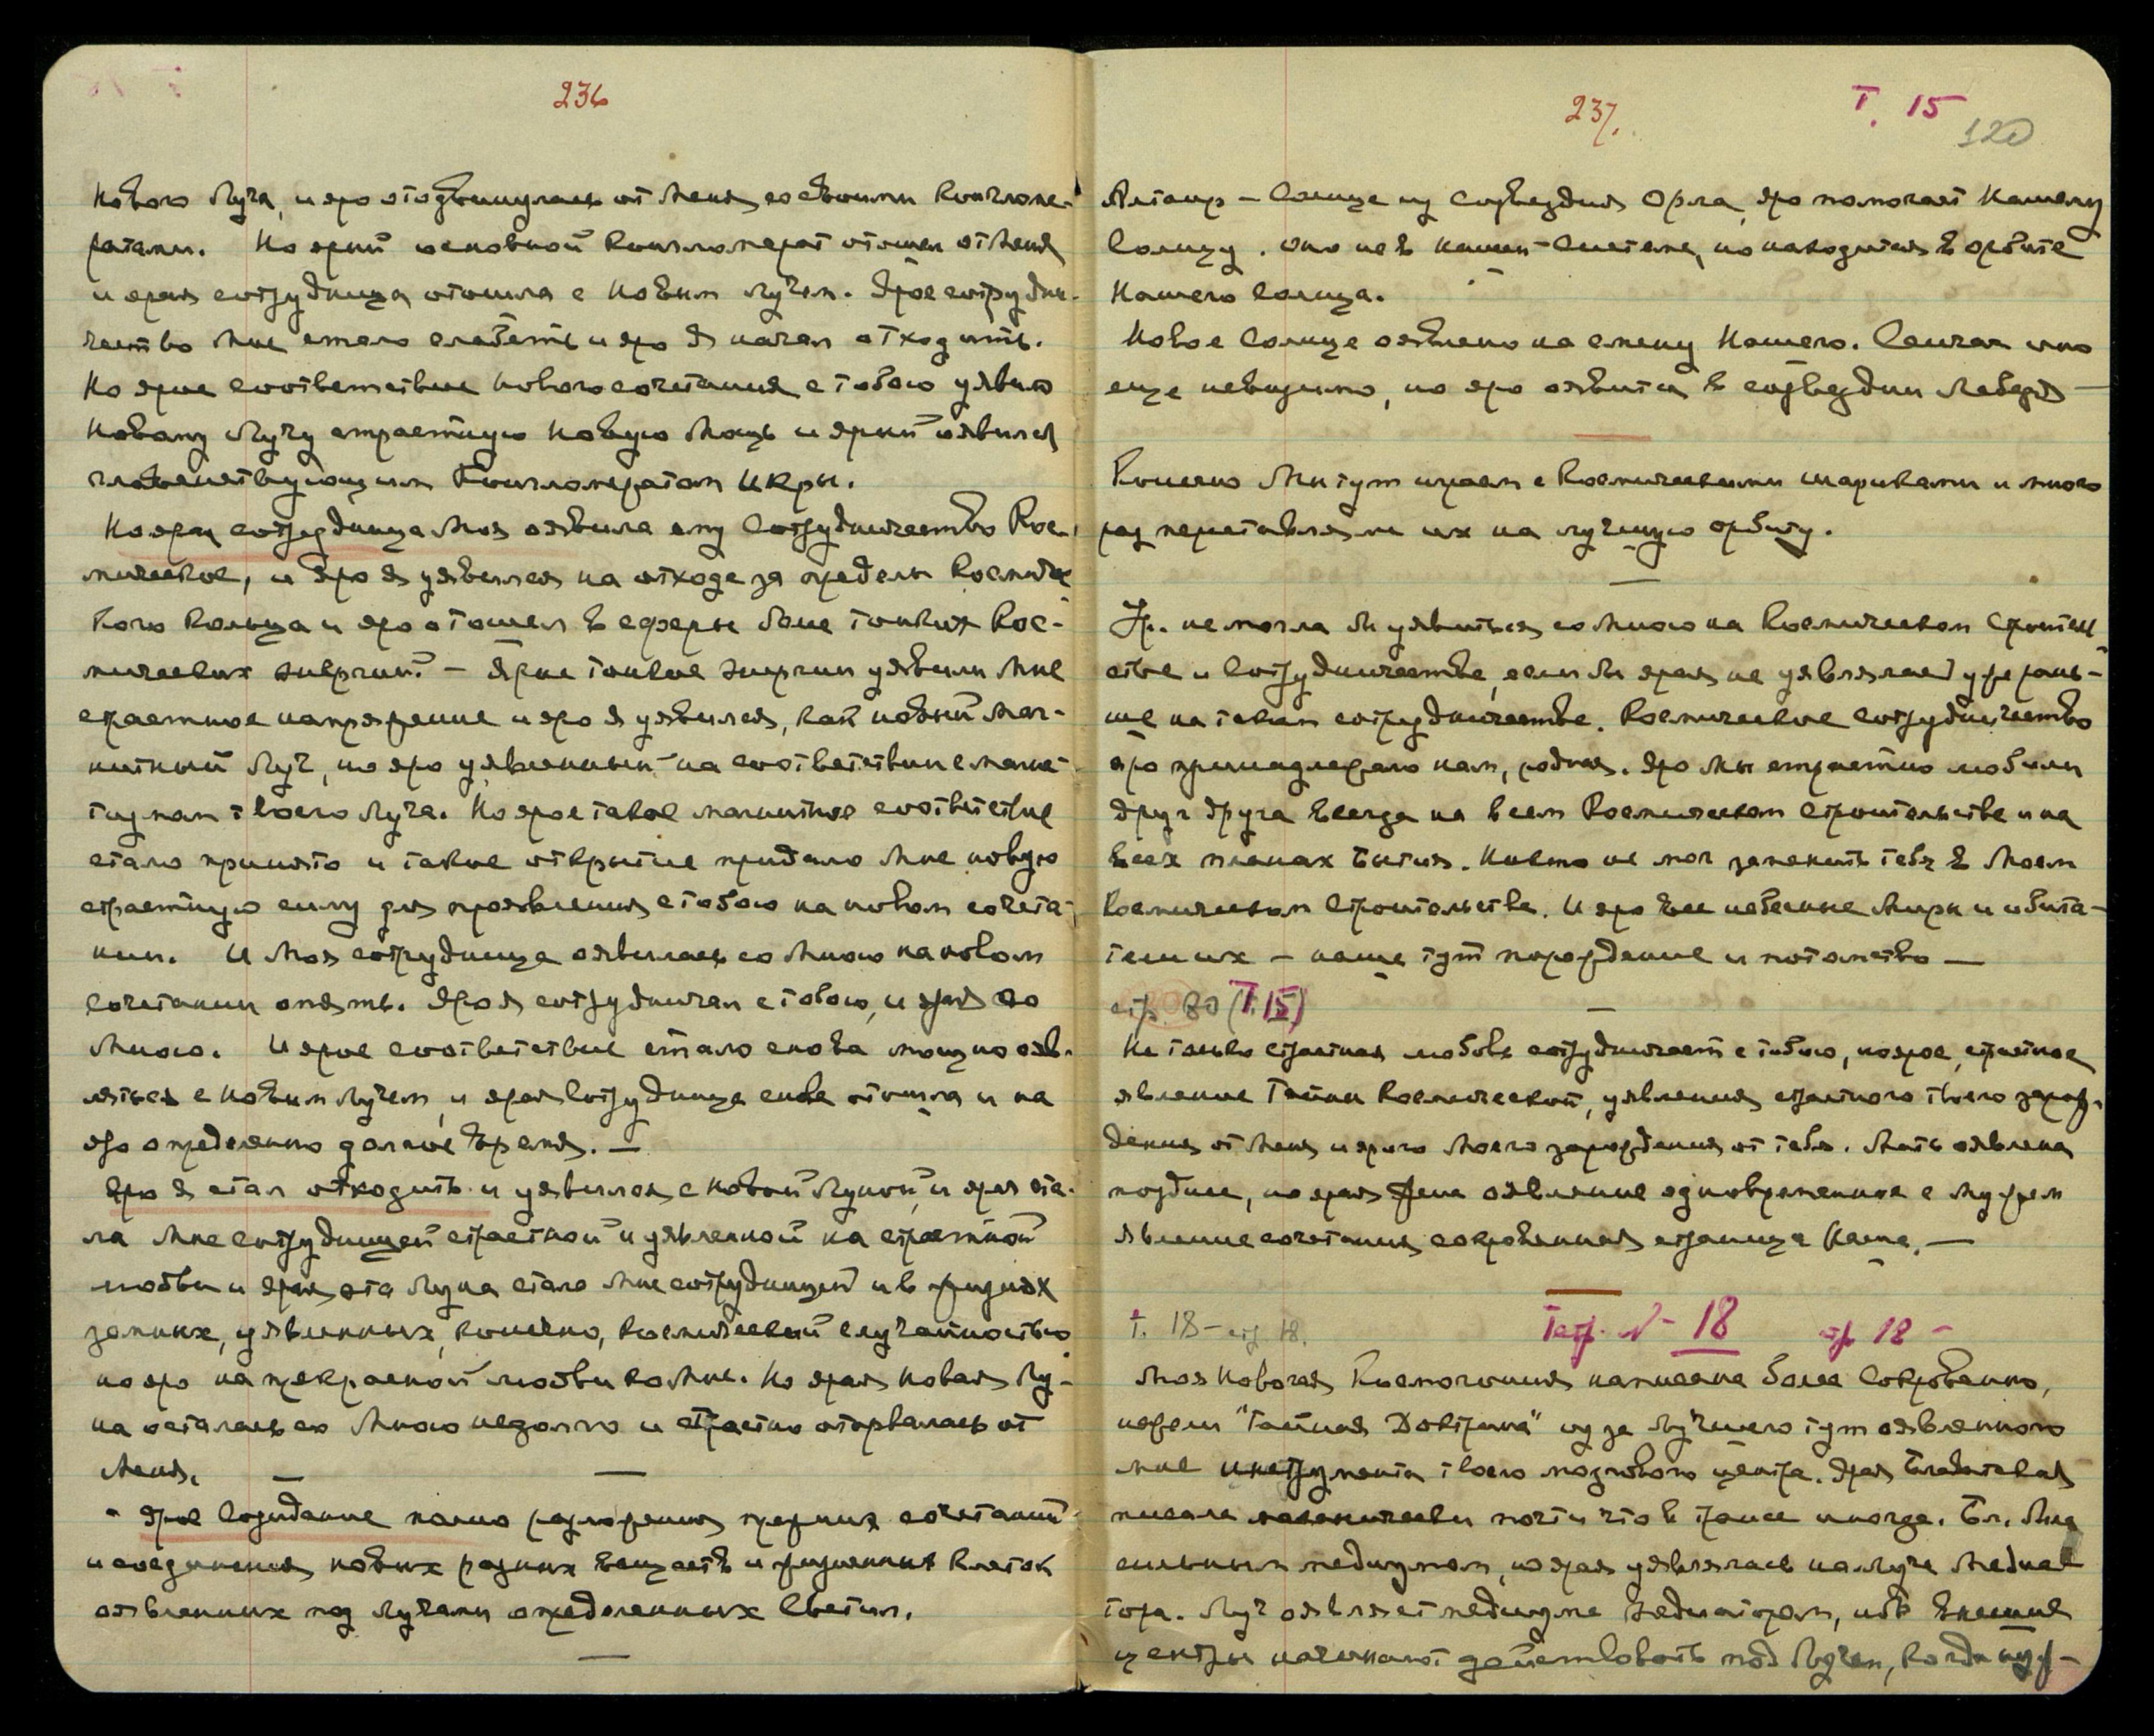 236
Нового Луча, и яро отодвинулась от Меня со своими Конгломе-
ратами. Но ярый основной Конгломерат отошел от Меня
и ярая сотрудница отошла с Новым Лучом. Ярое сотрудни-
чество Мне стало слабеть и яро Я начал отходить.
Но ярое соответствие нового сочетания с тобою уявило
Новому Лучу страстную Новую Мощь и ярый оявился
главенствующим Конгломератом Искры.
Но ярая сотрудница Моя оявила ему Сотрудничество Кос-
мическое, и яро Я уявился на отходе за пределы Космичес
кого Кольца и яро отошел в сферы более тонких Кос-
мических энергий. – Ярые тонкие энергии уявили Мне
страстное напряжение и яро Я уявился, как новый Маг-
нитный Луч, но яро уявленный на соответствии с магне-
тизмом твоего Луча. Но ярое такое магнитное соответствие
стало принято и такое открытие придало Мне новую
страстную силу для проявления с тобою на новом сочета-
нии. И Моя сотрудница оявилась со Мною на новом
сочетании опять. Яро Я сотрудничал с тобою, и ярая со
Мною. И ярое соответствие стало снова мощно ояв-
ляться с Новым Лучом, и ярая Сотрудница снова отошла и на
яро определенно долгое время. —
Яро Я стал отходить и уявился с Новой Луной, и ярая ста-
ла Мне сотрудницей страстной и уявленной на страстной
любви и ярая эта Луна стала Мне сотрудницей и в жизнях
земных, уявленных, конечно, Космической случайностью
но яро на прекрасной любви ко Мне. Но ярая Новая Лу-
на осталась со Мною недолго и страстно оторвалась от
Меня. —
Ярое Созидание полно разложения прежних сочетаний
и соединения новых разных веществ и жизненных клеток
оявленных под Лучами определенных Светил.
237.
Т. 15
120
Альтаир – Солнце из Созвездия Орла, яро помогает Нашему
Солнцу. Оно не в нашей Системе, но находится в орбите
Нашего Солнца.
Новое Солнце оявлено на смену Нашего. Сейчас оно
еще невидимо, но яро оявится в созвездии Лебедя —
Конечно Мы тут играем с Космическими шариками и много
раз переставляли их на лучшую орбиту.
Ур. не могла бы уявиться со Мною на Космическом Строитель
стве и Сотрудничестве, если бы ярая не уявлялась уже рань-
ше на таком сотрудничестве. Космическое сотрудничество
яро принадлежало нам, родная. Яро Мы страстно любили
друг друга всегда на всем Космическом Строительстве и на
всех планах Бытия. Никто не мог заменить тебя в Моем
Космическом Строительстве. И яро все небесные Миры и обита-
тели их – наше тут порождение и потомство —
стр. 80 (Т. 15)
Не только страстная любовь сотрудничает с тобою, но ярое, страстное
явление Тайны Космической, уявления страстного твоего зарож-
дения от Меня и ярого Моего зарождения от тебя. Мать оявлена
позднее, но ярая Жена оявление одновременное с Мужем
Явление сочетания, сокровенная страница Наша. —
т. 18 – стр. 18.
Тетр. N – 18 стр 18 –
Моя Новая Космогония написана более Сокровенно,
нежели "Тайная Доктрина" из за лучшего тут оявленного
мне инструмента твоего мозгового центра. Ярая Блаватская
писала механически почти что в трансе иногда. Бл. была
сильным медиумом, но ярая уявлялась на Луче Медиа
тора. Луч оявляет медиума медиатором, ибо внешние
центры начинают действовать под Лучом, когда